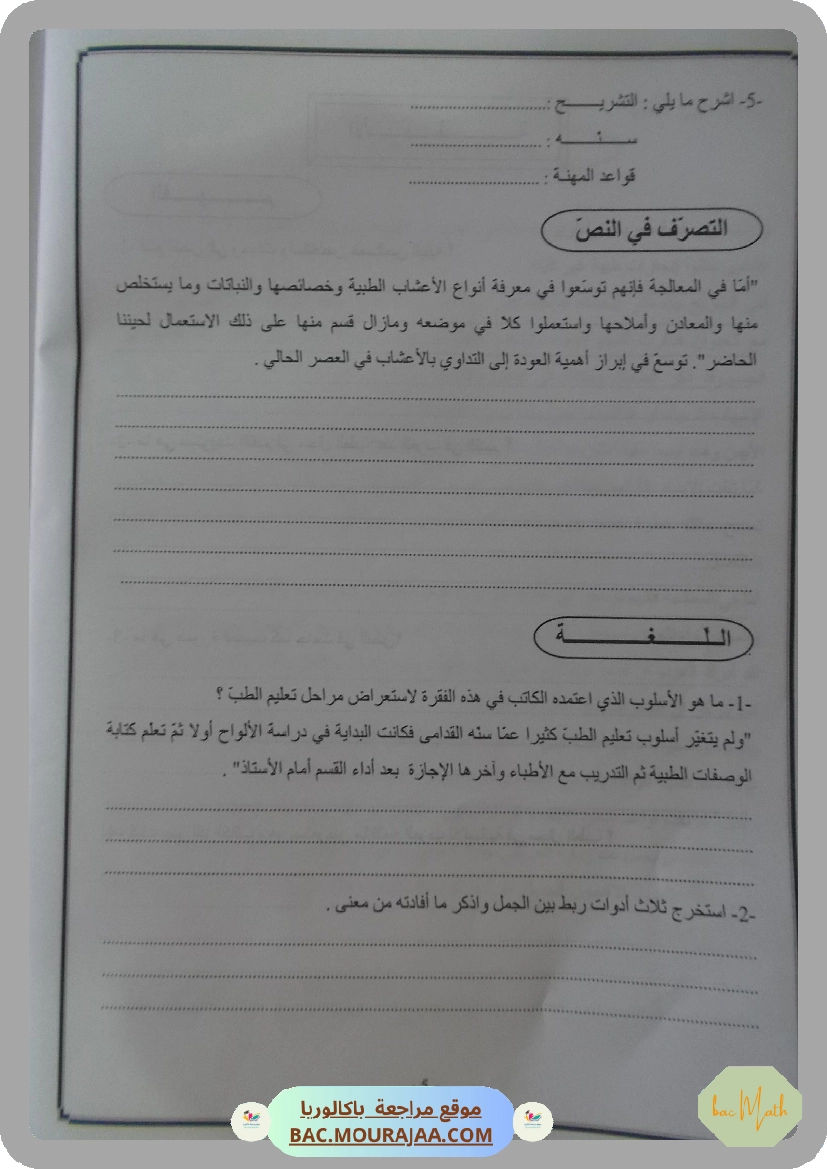 -5- اشرح ما يلي : التشريـــــح :..............................
سـنـــــه : ............................
قواعد المهنـة : ............................
التصرّف في النصّ
"أمّا في المعالجة فإنهم توسّعوا في معرفة أنواع الأعشاب الطبية وخصائصها والنباتات وما يستخلص
منها والمعادن وأملاحها واستعملوا كلا في موضعه ومازال قسم منها على ذلك الاستعمال لحيننا
الحاضر". توسعّ في إبراز أهمية العودة إلى التداوي بالأعشاب في العصر الحالي .
اللـــغـــــــــة
-1- ما هو الأسلوب الذي اعتمده الكاتب في هذه الفقرة لاستعراض مراحل تعليم الطبّ ؟
"ولم يتغيّر أسلوب تعليم الطبّ كثيرا عمّا سنّه القدامى فكانت البداية في دراسة الألواح أولا ثمّ تعلم كتابة
الوصفات الطبية ثم التدريب مع الأطباء وآخرها الإجازة بعد أداء القسم أمام الأستاذ" .
-2- استخرج ثلاث أدوات ربط بين الجمل واذكر ما أفادته من معنى .
موقع مراجعة باكالوريا
BAC.MOURAJAA.COM
bac Math